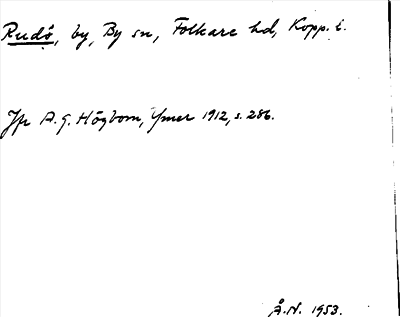 Rudö, by, By sn, Folkare hd, Kopp. l.
Jfr A. G. Högbom, Ymer 1912, s. 286.
Å.N. 1953.